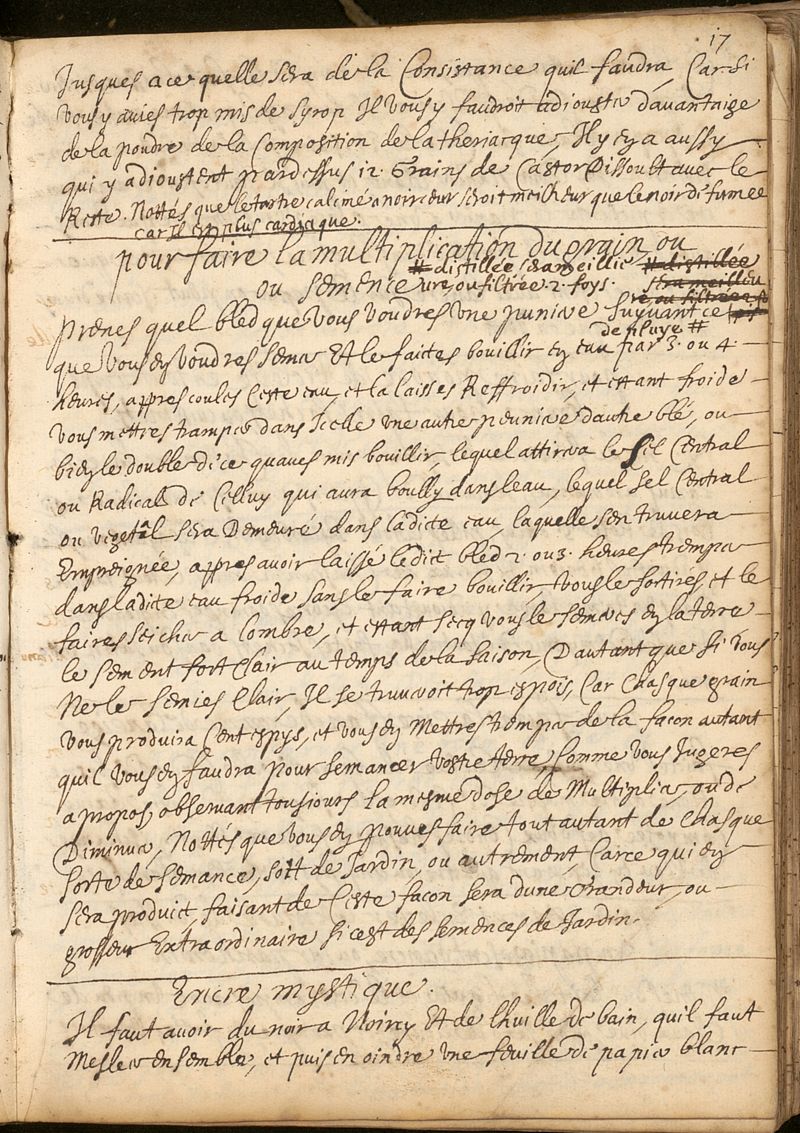 17
Jusques a ce quelle sera de la Consistance quil faudra, Car si
vous y avies trop mis de syrop Il vous y faudroit adiouster davantaige
de la poudre de la Composition de la theriacque, Il y en a aussy
qui y adioustent par dessus 12. Grains de Castor Dissoult avec le
Reste. Nottés que le tartre calciné a noirceur seroit meilheur que le noir de fumee
car Il est plus cardiaque.
pour faire la multiplication du grain ou
ou semence
# distillée sera meillieure, ou filtrée 2. foys.
# distillée sera meilleure ou filtrée 2 fois
Prenes quel bled que vous voudres une puniere suyvant ce
que vous en voudres semer Et le faictes bouillir en eau de pluye # par 3. ou 4.
heures, appres coules Ceste eau, et la laisses Reffroidir, et estant froide
vous mettres tramper dans Icelle une autre peuniere dautre blé, ou
bien le double de ce quaves mis bouillir, lequel attirera le sel Central
ou Radical de Celluy qui aura boully dans leau, lequel sel Central
ou vegetal sera Demeuré dans ladicte eau, laquelle sen truvera
Empreignée, appres avoir laissé ledict bled 2. ou 3. heures tremper
dans ladicte eau froide sans le faire bouillir, vous le sortires et le
faires seicher a lombre, et estant secq vous le semeres en la terre
le sement fort Clair au temps de la saison, Dautant que si vous
Ne le semies Clair, Il se truveroit trop espois, Car Chasque grain
vous produira Cent espys, et vous en Mettres tremper de la facon autant
quil vous en faudra pour semancer vostre terre, Comme vous Jugeres
a propos, observant tousiours la mesme dose de Multiplier, ou de
Diminuer, Nottés que vous en pouves faire tout autant de Chasque
sorte de semance, soit de Jardin, ou autrement, Car ce qui en
sera produict, faisant de Ceste facon sera dune Grandeur, ou
grosseur Extraordinaire si cest des semences de Jardin.
Encre mystique.
Il faut avoir du noir a Noircy Et de lhuille de bain, quil faut
Mesler ensemble, et puis en oindre une feuille de papier blanc